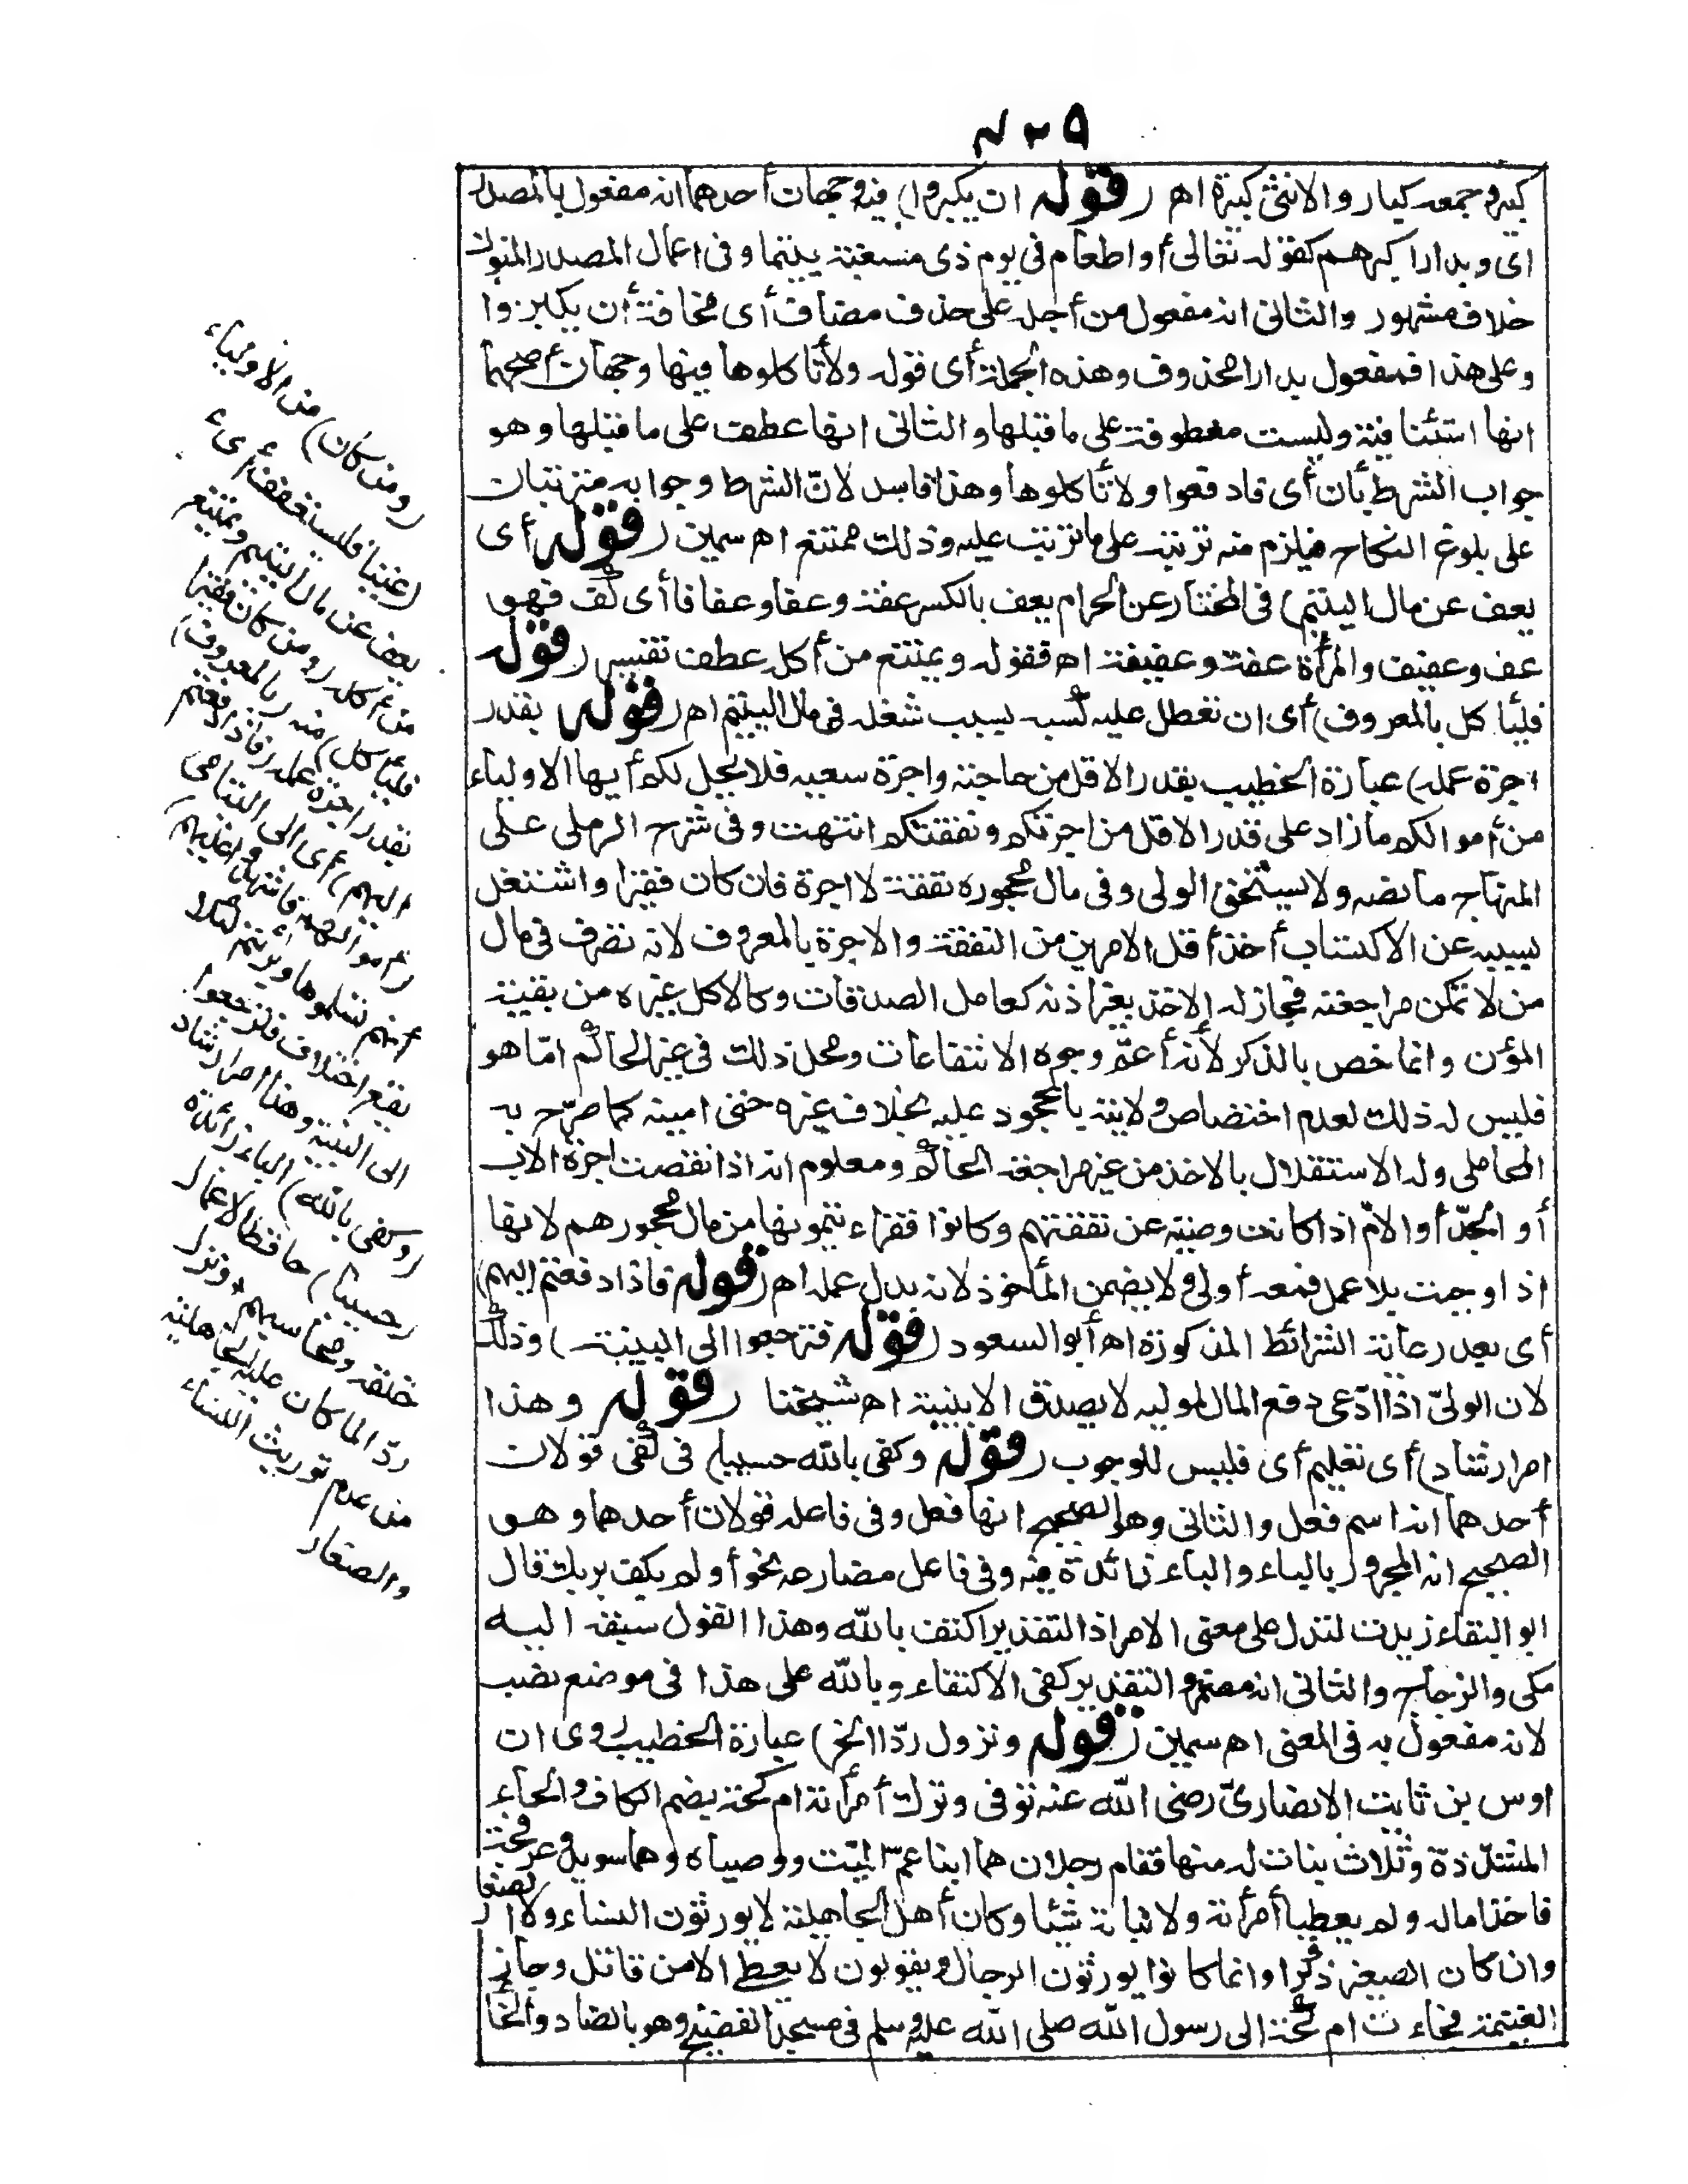 ٥٢٩
كبير وجمعه كبار والانثى كبيرة اهـ (قوله ان يكبروا) فيه وجهان أحدهما انه مفعول بالمصدر
اى وبدارا كبرهم كقوله تعالى أو اطعام فى يوم ذى مسغبة يتيما وفى اعمال المصدر المنون
خلاف مشهور والثانى انه مفعول من أجله على حذف مضاف أى مخافة أن يكبروا
وعلى هذا فمفعول بدارا محذوف وهذه الجملة أى قوله ولا تأكلوها فيها وجهان أصحهما
انها استئنافية وليست معطوفة على ما قبلها والثانى انها عطف على ما قبلها وهو
جواب الشرط بأن أى فادفعوا ولا تأكلوها وهذا فاسد لانّ الشرط وجوابه مترتبان
على بلوغ النكاح فيلزم منه ترتبه على ما ترتب عليه وذلك ممتنع اهـ سمين (قوله أى
يعف عن مال اليتيم) فى المختار عن الحرام يعف بالكسر عفة وعفا وعفافا أى كف فهو
عف وعفيف والمرأة عفة وعفيفة اهـ فقوله ويمتنع من أكله عطف تفسير (قوله
فليأكل بالمعروف) أى ان تعطل عليه كسبه بسبب شغله فى مال اليتيم اهـ (قوله بقدر
اجرة عمله) عبارة الخطيب بقدر الاقل من حاجته واجرة سعيه فلا يحل لكم أيها الاولياء
من أموالكم ما زاد على قدر الاقل من اجرتكم ونفقتكم انتهت وفى شرح الرملى على
المنهاج ما نصه ولا يستحق الولى وفى مال محجوره نفقة لا اجرة فان كان فقيرا واشتغل
بسببه عن الاكتساب أخذ أقل الامرين من النفقة والاجرة بالمعروف لانه تصرف فى مال
من لا تمكن مراجعته فجاز له الاخذ بغير اذنه كعامل الصدقات وكالاكل غيره من بقية
المؤن وانما خص بالذكر لأنه أعمّ وجوه الانتفاعات ومحل ذلك فى غير الحاكم امّا هو
فليس له ذلك لعدم اختصاص ولايته بالمحجور عليه بخلاف غيره حتى امينه كما صرّح به
المحاملى وله الاستقلال بالاخذ من غير مراجعة الحاكم ومعلوم انه اذا نقصت اجرة الاب
أو الجدّ أو الامّ اذا كانت وصية عن نفقتهم وكانوا فقراء يتمونها من مال محجورهم لانها
اذا وجبت بلا عمل فمعه أولى ولا يضمن المأخوذ لانه بدل عمله اهـ (قوله فاذا دفعتم إليهم)
أى بعد رعاية الشرائط المذكورة اهـ أبو السعود (قوله فترجعوا الى البينة) وذلك
لان الولىّ اذا ادّعى دفع المال لموليه لا يصدق الا ببينة اهـ شيخنا (قوله وهذا
امر ارشاد) أى تعليم أى فليس للوجوب (قوله وكفى بالله حسيبا) فى كفى قولان
أحدهما انه اسم فعل والثانى وهو الصحيح انها فعل وفى فاعله قولان أحدهما وهو
الصحيح انه المجرور بالباء والباء زائدة فيه وفى فاعل مضارعه نحو أو لم يكف بربك قال
ابو البقاء زيدت لتدل على معنى الامر اذ التقدير اكتف بالله وهذا القول سبقه اليه
مكى والزجاج والثانى انه مضمر والتقدير كفى الاكتفاء وبالله على هذا فى موضع نصب
لانه مفعول به فى المعنى اهـ سمين (قوله ونزل ردّا الخ) عبارة الخطيب روى ان
اوس بن ثابت الانصارىّ رضى الله عنه توفى وترك أمرأته ام كحة بضم الكاف والحاء
المشدّدة وثلاث بنات له منها فقام رجلان هما ابنا عمّ الميّت ووصياه وهما سويد وعرفجة
فاخذا ماله ولم يعطيا أمرأته ولا بناته شيئا وكان أهل الجاهلية لا يورثون النساء ولا الصغار
وان كان الصغير ذكرا وانما كانوا يورثون الرجال ويقولون لا يعطى الا من قاتل وحاز
الغنيمة فجاءت ام كحة الى رسول الله صلى الله عليه وسلم فى مسجد الفضيخ وهو بالضاد والخا
(ومن كان) من الاولياء
(غنيا فليستعفف) أى
يعف عن مال اليتيم ويمتنع
من أكله (ومن كان فقيرا
فليأكل) منه (بالمعروف)
بقدر اجرة عمله (فاذا دفعتم
اليهم) أى الى اليتامى
(أموالهم فاشهدوا عليهم)
أنهم تسلموها وبرئتم لئلا
يقع اختلاف فترجعوا
الى البينة وهذا امر ارشاد
(وكفى بالله) الباء زائدة
(حسيبا) حافظا لاعمال
خلقه ومحاسبهم * ونزل
ردّا لما كان عليه الجاهلية
من عدم توريث النساء
والصغار